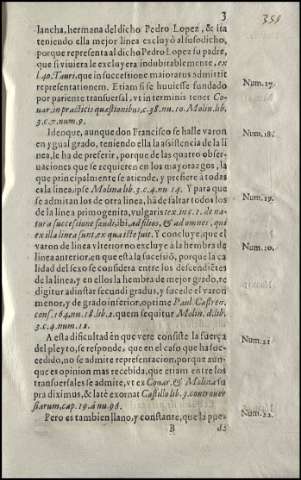 3
351
lancha, hermana del dicho Pedro Lopez, & ita
teniendo ella mejor linea excluyò al susodicho,
porque representa al dicho Pedro Lopez su padre,
que si viuiera le excluyera indubitablemente, ex
l. 40. Tauri, que in successione maioratus admittit
representationem. Etiam si se huuiesse fundado
por pariente transuersal, vt in terminis tenet Couar. in practicis quæstionibus, c. 38. nu. 10. Molin. lib.
3. c. 7. num. 9.
Num. 17.
Ideoque, aunque don Francisco se halle varon
en ygual grado, teniendo ella la assistencia de la li
nea, le ha de preferir, porque de las quatro obser-
uaciones que se requieren en los mayorazgos, la
que principalmente se atiende, y prefiere à todas
es la linea, ipse Molina lib. 3. c. 4. nu. 14. Y para que
se admitan los de otra linea, hà de faltar todos los
de la linea primogenita, vulgaris tex. in c. 1. de na-
tura successione feudi, ibi, ad filios, & ad omnes, qui
ex illa linea sunt, ex qua iste fuit. Y concluye, que el
varon de linea vlterior no excluye a la hembra de
linea anterior, en que està la successiõ, porque la ca
lidad del sexo se considera entre los descendiẽtes
de la linea, y no ellos la hembra de mejor grado, re
digitur ad instar secundi gradus, y sucede el varon
menor, y de grado inferior, optime Paul. Castren.
cons. 164. nu. 18. lib. 2. quem sequitur Molin. d. lib.
3. c. 4. num. 12.
Num. 18.
Num. 19.
Num. 20.
A esta dificultad en que vere consiste la fuerça
del pleyto, se responde, que en el caso que ha suc-
cedido, no se admite representacion, porque aun-
que es opinion mas recebida, que etiam entre los
transuersales se admite, vt ex Couar. & Molina su
pra diximus, & latè exornat Castillo lib. 3. controuer
siarum, cap. 19. à nu. 98.
Num. 21
Pero es tambien llano, y constante, que la ppe-
Num. 22.
B
dad